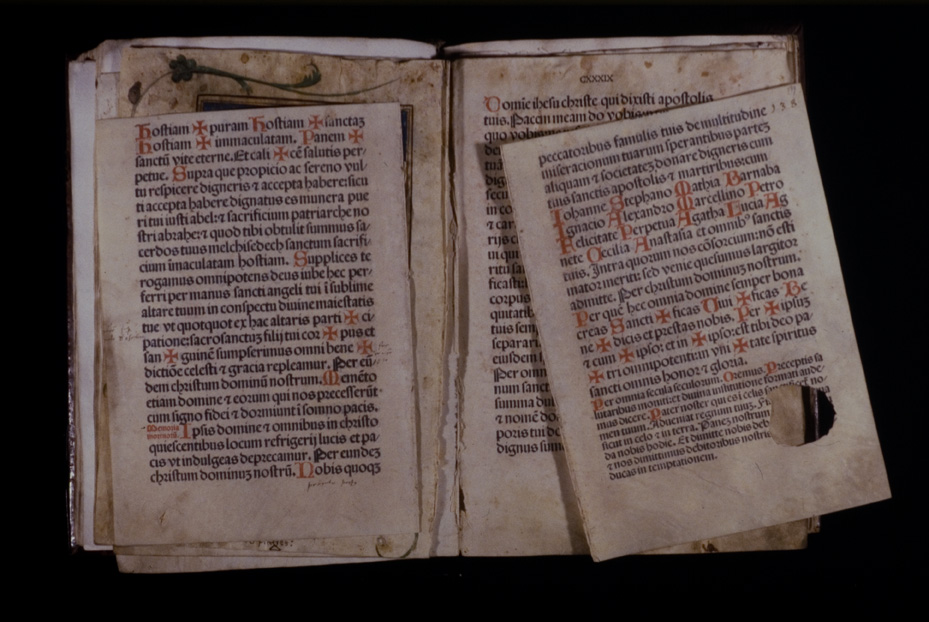 Hostiam ✠ puram Hostiam ✠ sanctaʒ
Hostiam ✠ immaculatam. Panem ✠
sanctū vite eterne. Et cali ✠ cē salutis per/
petue. Supra que propicio ac sereno vul/
tu respicere digneris ⁊ accepta habere: sicu
ti accepta habere dignatus es munera pue
ri tui iusti abel: ⁊ sacrificium patriarche no
stri abrahe: ⁊ quod tibi obtulit summus sa/
cerdos tuus melchisedech sanctum sacrifi/
cium imaculatam hostiam. Supplices te
rogamus omnipotens deus iube hec per/
ferri per manus sancti angeli tui ī sublime
altare tuum in conspectu divine maiestatis
tue vt quotquot ex hac altaris parti ✠ ci/
patione: sacrosanctuʒ filij tui cor ✠ pus et
san ✠ guinē sumpserimus omni bene ✠
dictiōe celesti ⁊ gracia repleamur. Per eū/
dem christum dominū nostrum. Memēto
etiam domine ⁊ eorum qui nos precesserūt
cum signo fidei ⁊ dormiunt ī somno pacis.
Ipsis domine ⁊ omnibus in christo
quiescentibus locum refrigerij lucis et pa/
cis vt indulgeas deprecamur. Per eundeʒ
christum dominuʒ nostrū. Nobis quoqʒ
CXXXIX
Domine ihesu christe qui dixisti apostolis
tuis. Pacem meam do vobis
quo vobis
in co
⁊ car
in qui
ritu sa
corpus
tuis sem
separari
eiusdem
Per omn
num sanct
⁊ nomē do
poris tui de
dignus sum
138
peccatoribus famulis tuis de multitudine
miseracionum tuarum sperantibus parteʒ
aliquam ⁊ societateʒ donare digneris cum
tuis sanctis apostolis ⁊ martiribus: cum
Iohanne Stephano Mathia Barnaba
Ignacio Alexandro Marcellino Petro
Felicitate Perpetua Agatha Lucia Ag
nete Cecilia Anastasia et omnibꝰ sanctis
tuis. Intra quorum nos cōsorcium: nō esti
mator meriti: sed venie quesumus largitor
admitte. Per christum dominuʒ nostrum.
Per quē hec omnia domine semper bona
creas Sancti ✠ ficas Viui ✠ ficas Be
ne ✠ dicis et prestas nobis. Per ✠ ipsuʒ
⁊ cum ✠ ipso: et in ✠ ipso: est tibi deo pa
✠ tri omnipotenti: in vni ✠ tate spiritus
sancti omnis honor ⁊ gloria.
Per omnia secula seculorum. Oremus. Preceptis sa
lutaribus moniti: et diuina institutione formati aude/
mus dicere. Pater noster qui es ī celis
men tuum. Adueniat regnum tuuʒ. Fi
sicut in celo ⁊ in terra. Paneʒ nostrum
da nobis hodie. Et dimitte nobis deb
⁊ nos dimittimus debitoribus nostris
ducas in temptationem.